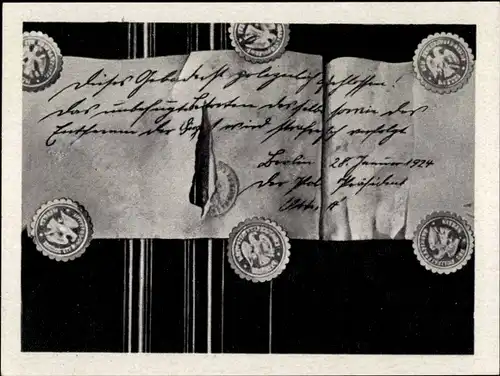 Dieses Gebäude ist polizeilich geschlossen!
Das unbefugte Betreten desselben sowie das
Entfernen der Siegel wird strafrechtl. verfolgt
Berlin 28. Januar 1924
Der Pol. Präsident